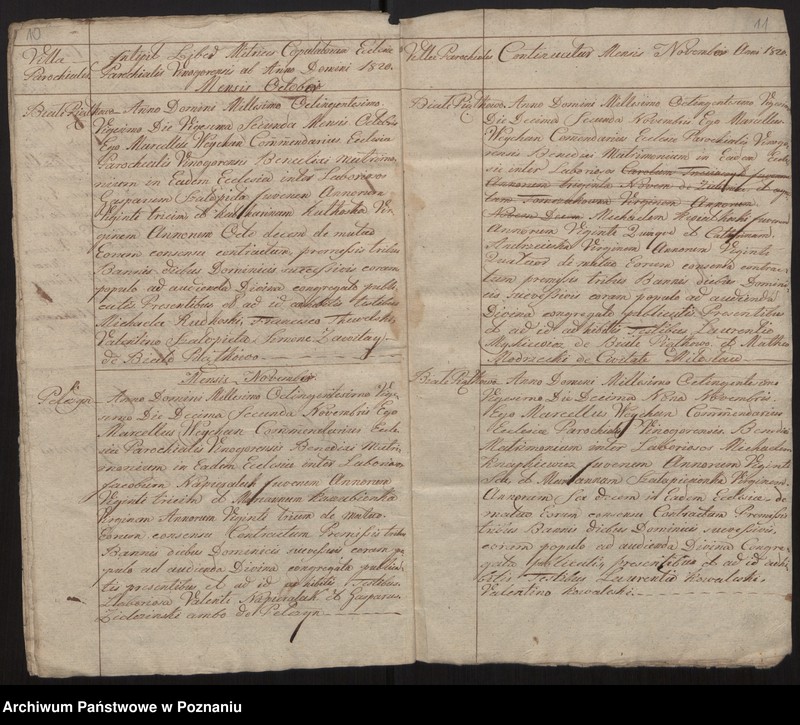 10
Villa Parochialis
Incipit Liber Metrices Copulatorum Ecclesiae
Parochialis Vinogorensis ab Anno Domini 1820.
Mensis Octobris
Biale Piątkowo
Anno Domini Millesimo Octingentesimo
Vigesimo Die Vigesima Secunda Mensis Octobris
Ego Marcellus Weychan Commendarius Ecclesia
Parochialis Vinogorensis Benedixi matrimo
nium in Eadem Ecclesia inter Laboriosos
Gasparem Szalapieta Juvenem Annorum
Viginti trium et Katharinam
Virginem Annorum Octo decem de mutuo
Eorum consensu contractum, premissis tribus
Bannis diebus Dominicis successivis coram
populo ad audienda Divina congregato publi
catis Presentibus et ad id adhibitis Testibus
Michaele Rudkoski, Francisco
Valentino Szalapieta Simone
de Biale Piątkowo
Mensis November
Pełczyn
Anno Domini Millesimo Octingentesimo Vige
simo Die Decima Secunda Novembris Ego
Marcellus Weychan Commendarius Eccle
sia Parochialis Vinogorensis Benedixi Matri
monium in Eadem Ecclesia inter Laboriosos
Jacobum Napieralak Juvenem Annorum
Viginti trium et Mariannam
Virginem Annorum Viginti trium de mutuo
Eorum consensu Contractum Premissis tribus
Bannis diebus Dominicis successivis coram po
pulo ad audienda Divina congregato publica
tis presentibus et ad id adhibitis Testibus
Laboriosis Valenti Napieralak et Gasparo
ambo de Pełczyn
11
Villa Parochialis
Continuatur Mensis November Anni 1820
Biale Piątkowo
Anno Domini Millesimo Octingentesimo Vigesimo
Die Decima Secunda Novembris Ego Marcellus
Weychan Commendarius Ecclesia Parochialis Vinogo
rensis Benedixi Matrimonium in Eadem Eccle
sia inter Laboriosos
Annorum triginta Novem de
Virginem Annorum
Michaelem Juvenem
Annorum Viginti Quinque et Catharinam
Virginem Annorum Viginti
Quatuor de mutuo Eorum consensu contrac
tum premissis tribus Bannis diebus Domini
cis successivis coram populo ad audienda
Divina congregato publicatis Presentibus
et ad id adhibitis Testibus Laurentio
Myskiewicz de Biale Piątkowo et Matheo
Modrzecki de Civitate Miłosław
Biale Piątkowo
Anno Domini Millesimo Octingentesimo
Vigesimo Die Decima Nona Novembris
Ego Marcellus Weychan Commendarius
Ecclesia Parochialis Vinogorensis Benedixi
Matrimonium inter Laboriosos Michaelem
Juvenem Annorum Viginti
et Mariannam Szalapienonka Virginem
Annorum Sex decem in Eadem Ecclesia de
mutuo Eorum consensu Contractum Premissis
tribus Bannis diebus Dominicis successivis
coram populo ad audienda Divina Congre
gato publicatis, presentibus et ad id adhi
bitis Testibus Laurentio Kowalski,
Valentino Kowalski.
Archiwum Państwowe w Poznaniu